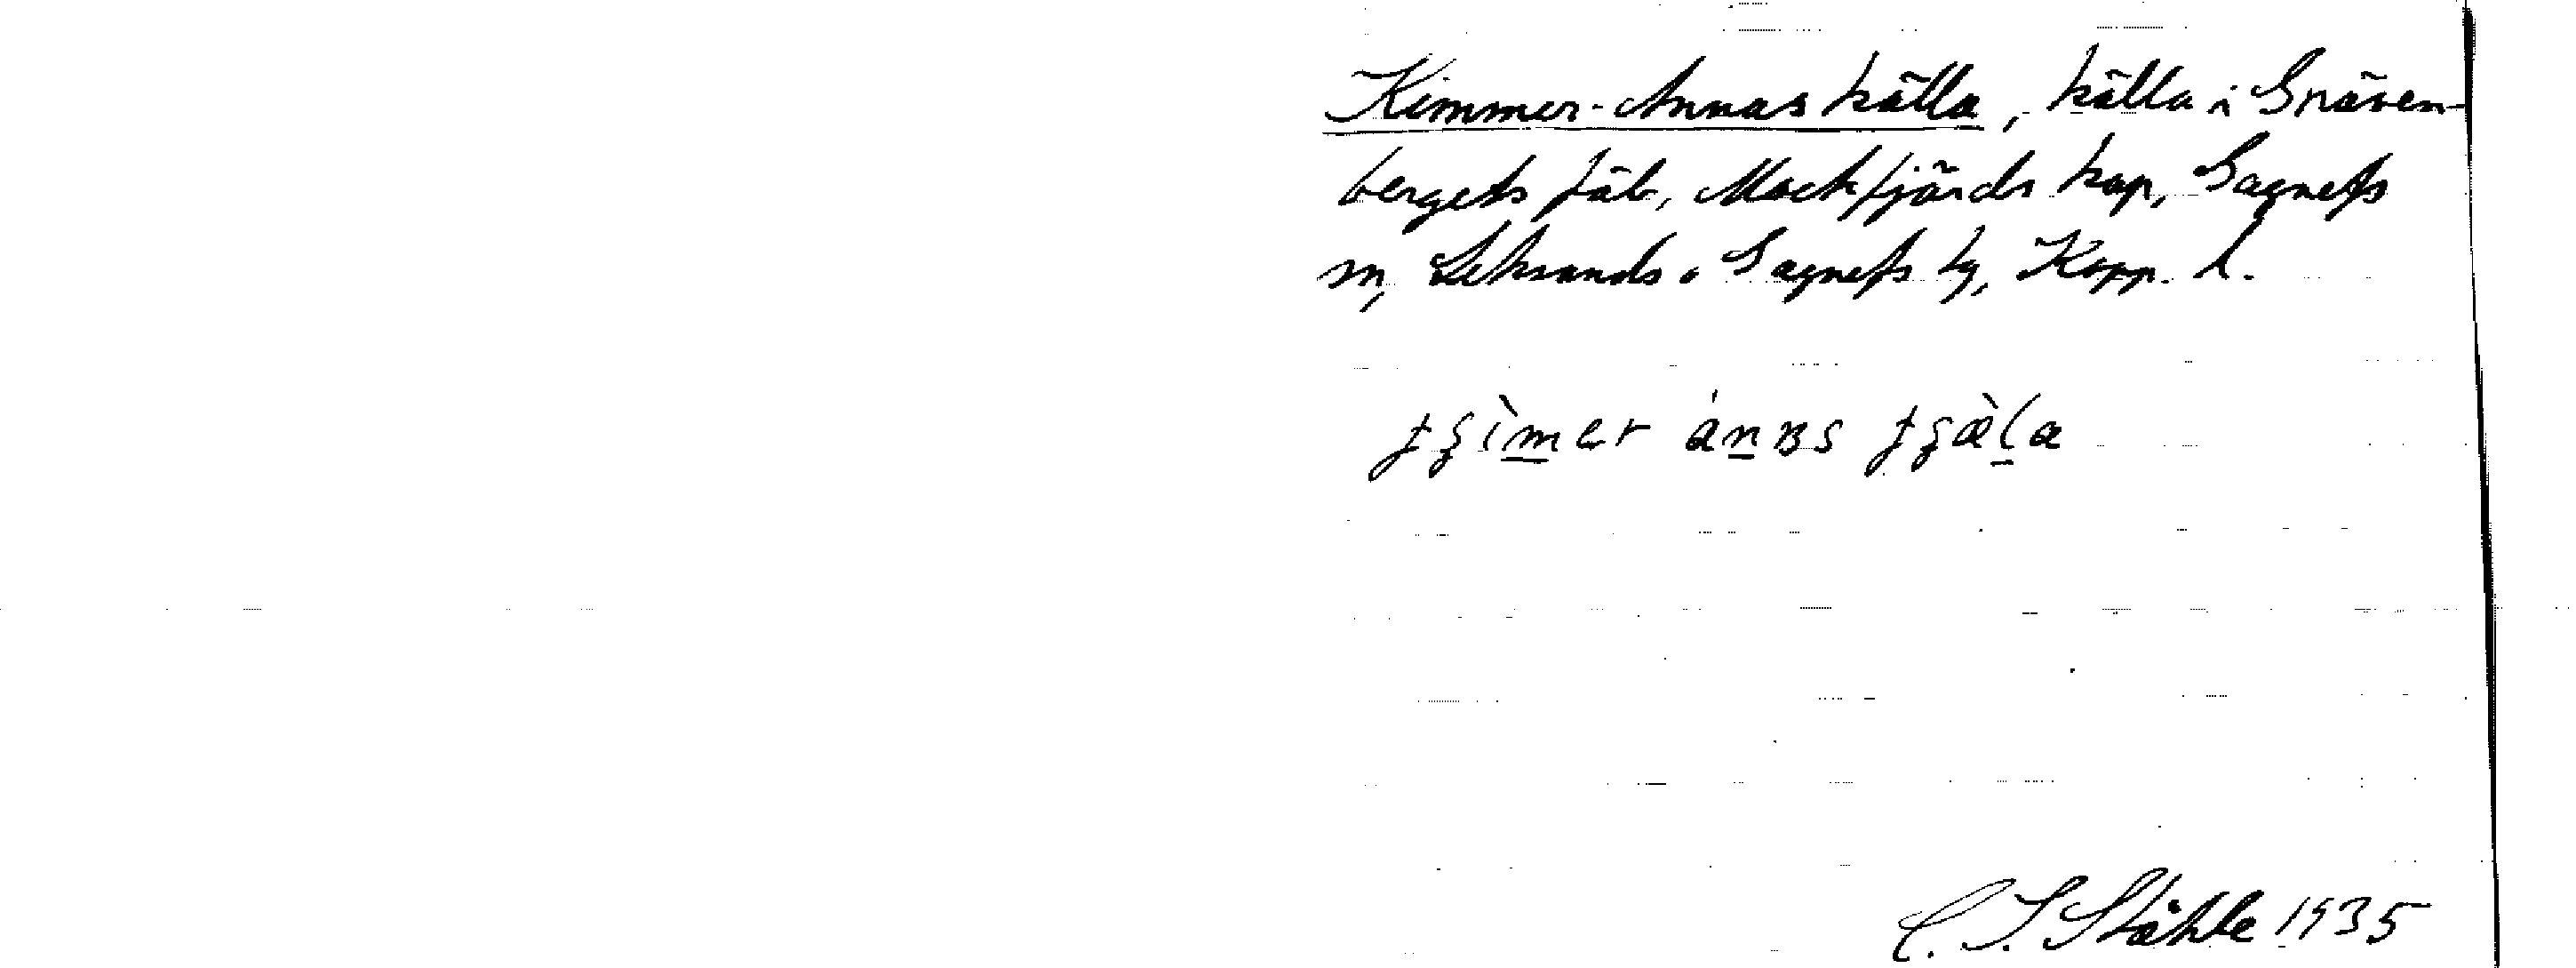 Kimmer-Annas källa, källa i Gräven-
bergets fäb, Mockfjärds kap, Gagnefs
sn, Leksands o Gagnefs tg, Kopp. l.
C. I. Ståhle 1935